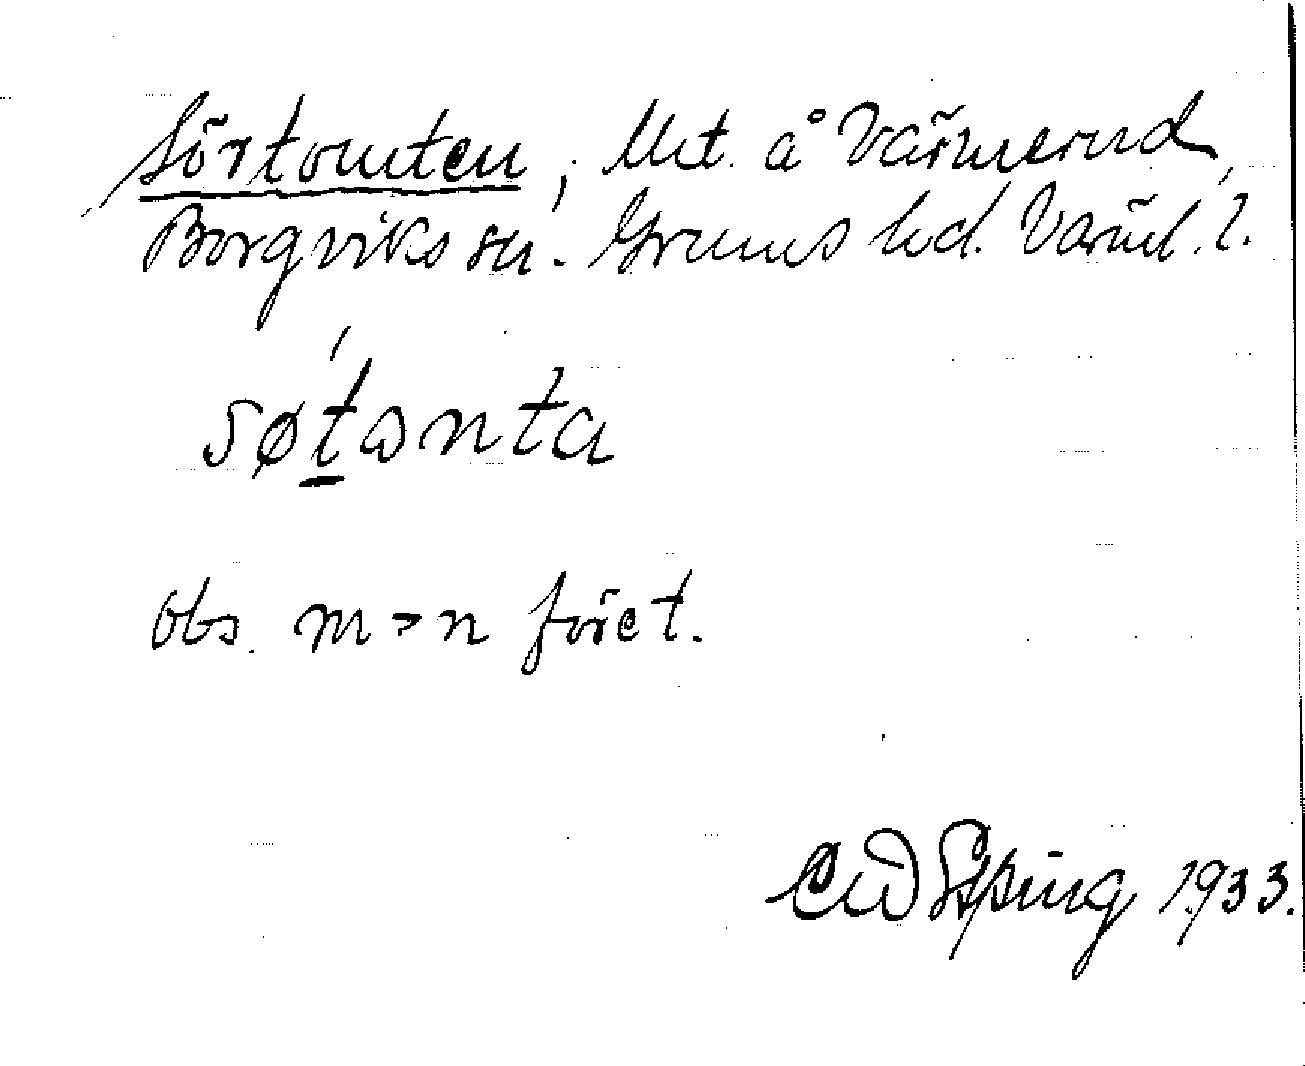 Sörtomten, Utt. å Värmerud,
Borgviks sn. Grums hd. Värml. l.
søtωnta
Obs. m > n före t.
1933.